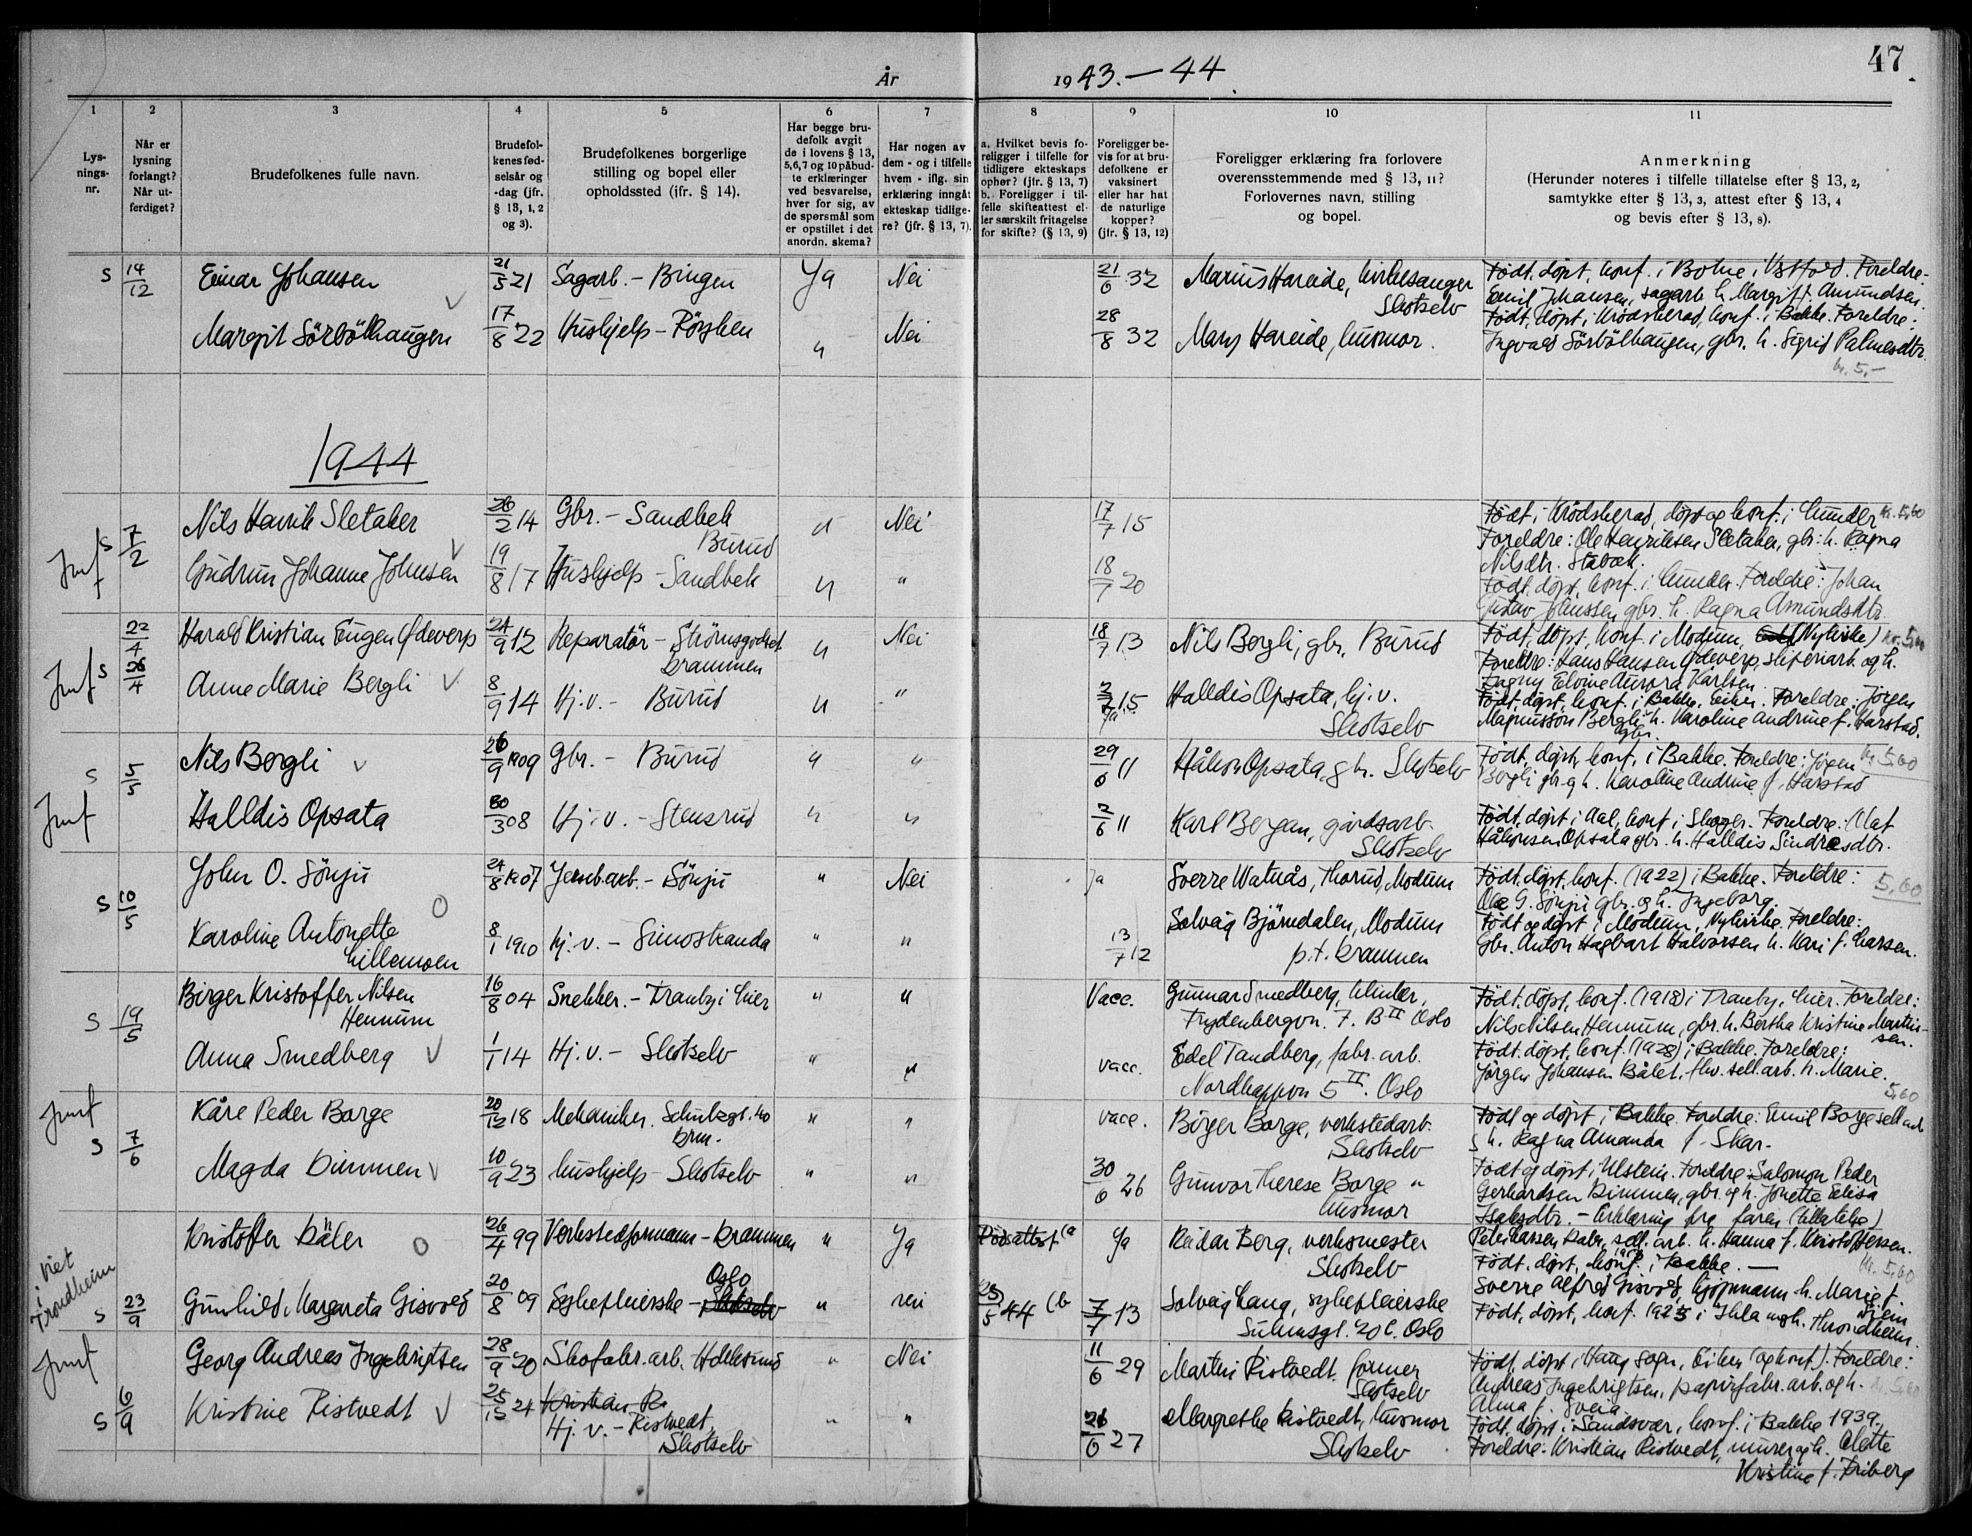 47
År 1943.—44
1 2 3 4 5 6 7 8 9 10 11
Lysningsnr.
Når er lysning forlangt? Når utferdiget?
Brudefolkenes fulle navn.
Brudefolkenes fødselsår og -dag (jfr. § 13, 1, 2 og 3).
Brudefolkenes borgerlige stilling og bopel eller opholdssted (ifr. § 14).
Har begge brudefolk avgit de i lovens § 13, 5,6,7 og 10 påbudte erklæringer ved besvarelse, hver for sig, av de spørsmål som er opstillet i det anordn. skema?
Har nogen av dem - og i tilfelle hvem - iflg. sin erklæring inngåt ekteskap tidligere? (jfr. § 13, 7).
a. Hvilket bevis foreligger i tilfelle for tidligere ekteskaps ophør? (jfr. § 13, 7)
b. Foreligger i tilfelle skifteattest eller særskilt fritagelse for skifte? (§ 13, 9)
Foreligger bevis for at brudefolkene er vaksinert eller har hat de naturlige kopper? (jfr. § 13, 12)
Foreligger erklæring fra forlovere overensstemmende med § 13, 11? Forlovernes navn, stilling og bopel.
Anmerkning
(Herunder noteres i tilfelle tillatelse efter § 13, 2, samtykke efter § 13, 3, attest efter § 13, 4 og bevis efter § 13, 8).
S 14/12 Einar Johansen 21/5 21 Sagarb. – Bingen Ja Nei 21/6 32 Marius Hareide, kirkesanger Skotselv
Født, døpt, konf. i Botne i Vestfold. Foreldre: Emil Johansen, sagarb. h. Margit f. Amundsen.
Margit Sörbölhaugen 17/8 22 Hushjelp – " Nei 28/8 32 Mary Hareide, husmor.
Født, døpt, i Krødsherad, konf. i Bakke. Foreldre: Ingvald Sörbölhaugen, gbr. h. Sigrid Palmesdtr.
kr. 5,–
1944
S 7/2 Nils Henrik Sletaker 26/2 14 Gbr. – Sandbek Burud " Nei 17/7 15
Født i Krødsherad, døpt og konf. i Lunder kr. 5,60
Foreldre: Ole Henriksen Sletaker, gbr. h. Ragna Nilsdtr.
Gudrun Johanne Johnsen 19/8 17 Hushjelp – Sandbek " " 18/7 20
Født, døpt, konf. i Lunder. Foreldre: Johan Gustav gbr. h. Ragna Amundsdtr.
22/4
S 26/4 Harald Kristian Eugen Ødeverp 24/9 12 Reparatør – Strömsgodset Drammen " Nei 18/7 13 Nils Bergli, gbr, Burud
Født, døpt, konf. i Modum, (Nykirke)
Foreldre: Hans Hansen Ødeverp, sliperiarb. og h. Dagny Aurora Karlsen.
Anne Marie Bergli 8/9 14 Hj.v. – Burud " " 15 Ja Halldis Opsata, hj.v. Skotselv
Født, døpt, konf. i Bakke, Eiker. Foreldre: Jörgen Magnusson Bergli gbr. h. Karoline Andrine f. Harstad.
S 5/5 Nils Bergli 26/9 1909 Gbr. – Burud " " 29/6 11 Håkon Opsata, gbr. Skotselv
Født, døpt, konf. i Bakke. Foreldre: Jörgen kr 5,60
Bergli gbr. og h. Karoline Andrine f. Harstad
Halldis Opsata 30/3 08 Hj.v. – Stensrud " " 2/6 11 Karl Bergan, gårdsarb. Skotselv
Født, døpt i Aal, konf. i Skoger. Foreldre: Olaf Håkonsen Opsata gbr. h. Halldis Sindresdtr.
S 10/5 John O. Sönju 24/8 1907 Jernb.arb. – Sönju " Nei Ja Sverre Watnås, Thorud, Modum
Født, døpt, konf. (1922) i Bakke. Foreldre: 5,60
Ole G. Sönju gbr. og h. Ingeborg.
Karoline Antonette Lillemoen 8/1 1910 hj.v. – Simostranda " " 13/7 12 Solveig Björndalen, Modum p.t. Drammen
Født og døpt i Modum, Nykirke. Foreldre: Gbr. Anton Hagbart Halvorsen h. Kari f. Larsen.
S 19/5 Birger Kristoffer Nilsen Hennum 16/8 04 Snekker. – Tranby i Lier " " Vacc. Gunnar Smedberg, Frydenbergvn. 7. B II Oslo
Født, døpt, konf. (1918) i Tranby, Lier. Foreldre: Nils Nilsen Hennum, gbr. h. Bertha Kristine Martinsen.
Anna Smedberg 1/1 14 Hj.v. – Skotselv " " vacc. Edel Tandberg, fabr. arb. Nordkappvn 5 II. Oslo
Født, døpt, konf. (1928) i Bakke. Foreldre: Jörgen Johansen Bålet, fhv. sell.arb. h. Marie.
5,60
S 7/6 Kåre Peder Borge 20/12 18 Mekaniker. Schultzgt. 40 Drm. " " vacc. Börger Borge, verkstedarb. Skotselv
Født og døpt i Bakke. Foreldre: Emil Borge sell.arb. h. Ragna Amanda f. Skar.
Magda Dimmen 10/9 23 Hushjelp – Skotselv " " 30/6 26 Gunvor Therese Borge " husmor
Født og døpt i Ulstein. Foreldre: Salomon Peder Gerhardsen Dimmen, gbr. og h. Jonette Elisa Isaksdtr. – Erklæring fra faren (tillatelse)
Kristoffer Däler 26/4 99 Verkstedformann – Drammen " Ja Dødsattest (a Ja Reidar Berg, verksmester Skotselv
sell. arb. h. Hanna f. Kristoffersen.
Født, døpt, konf. i Bakke. — kr. 5,60
Viet i Trondheim
S 23/9 Gunhild Margareta Gisvold 20/8 09 Sykepleierske – Oslo Skotselv " nei 23/5 44 (b 7/7 13 Solveig Laug, sykepleierske Suhmsgt. 20 C. Oslo
Sverre Alfred Gisvold, kjøpmann h. Marie f.
Født, døpt, konf. 1925 i Ihla mgh. Throndheim.
S 6/9 Georg Andreas Ingebrigtsen 28/9 20 Skofabr.arb. Hokksund " Nei 11/6 29 Martin Ristvedt, former Skotselv
Født, døpt i Haug sogn, Eiker (og konf.). Foreldre: Andreas Ingebrigtsen, papirfabr.arb. og h. Alma f. Sveia
Kristine Ristvedt 24 Kristian R. Hj.v. – Ristvedt, Skotselv " " 26/6 27 Margrethe Ristvedt, husmor Skotselv
Født, døpt i Sandsvær, konf. i Bakke 1939.
Foreldre: Kristian Ristvedt, murer og h. Olette Kristine f. Friberg